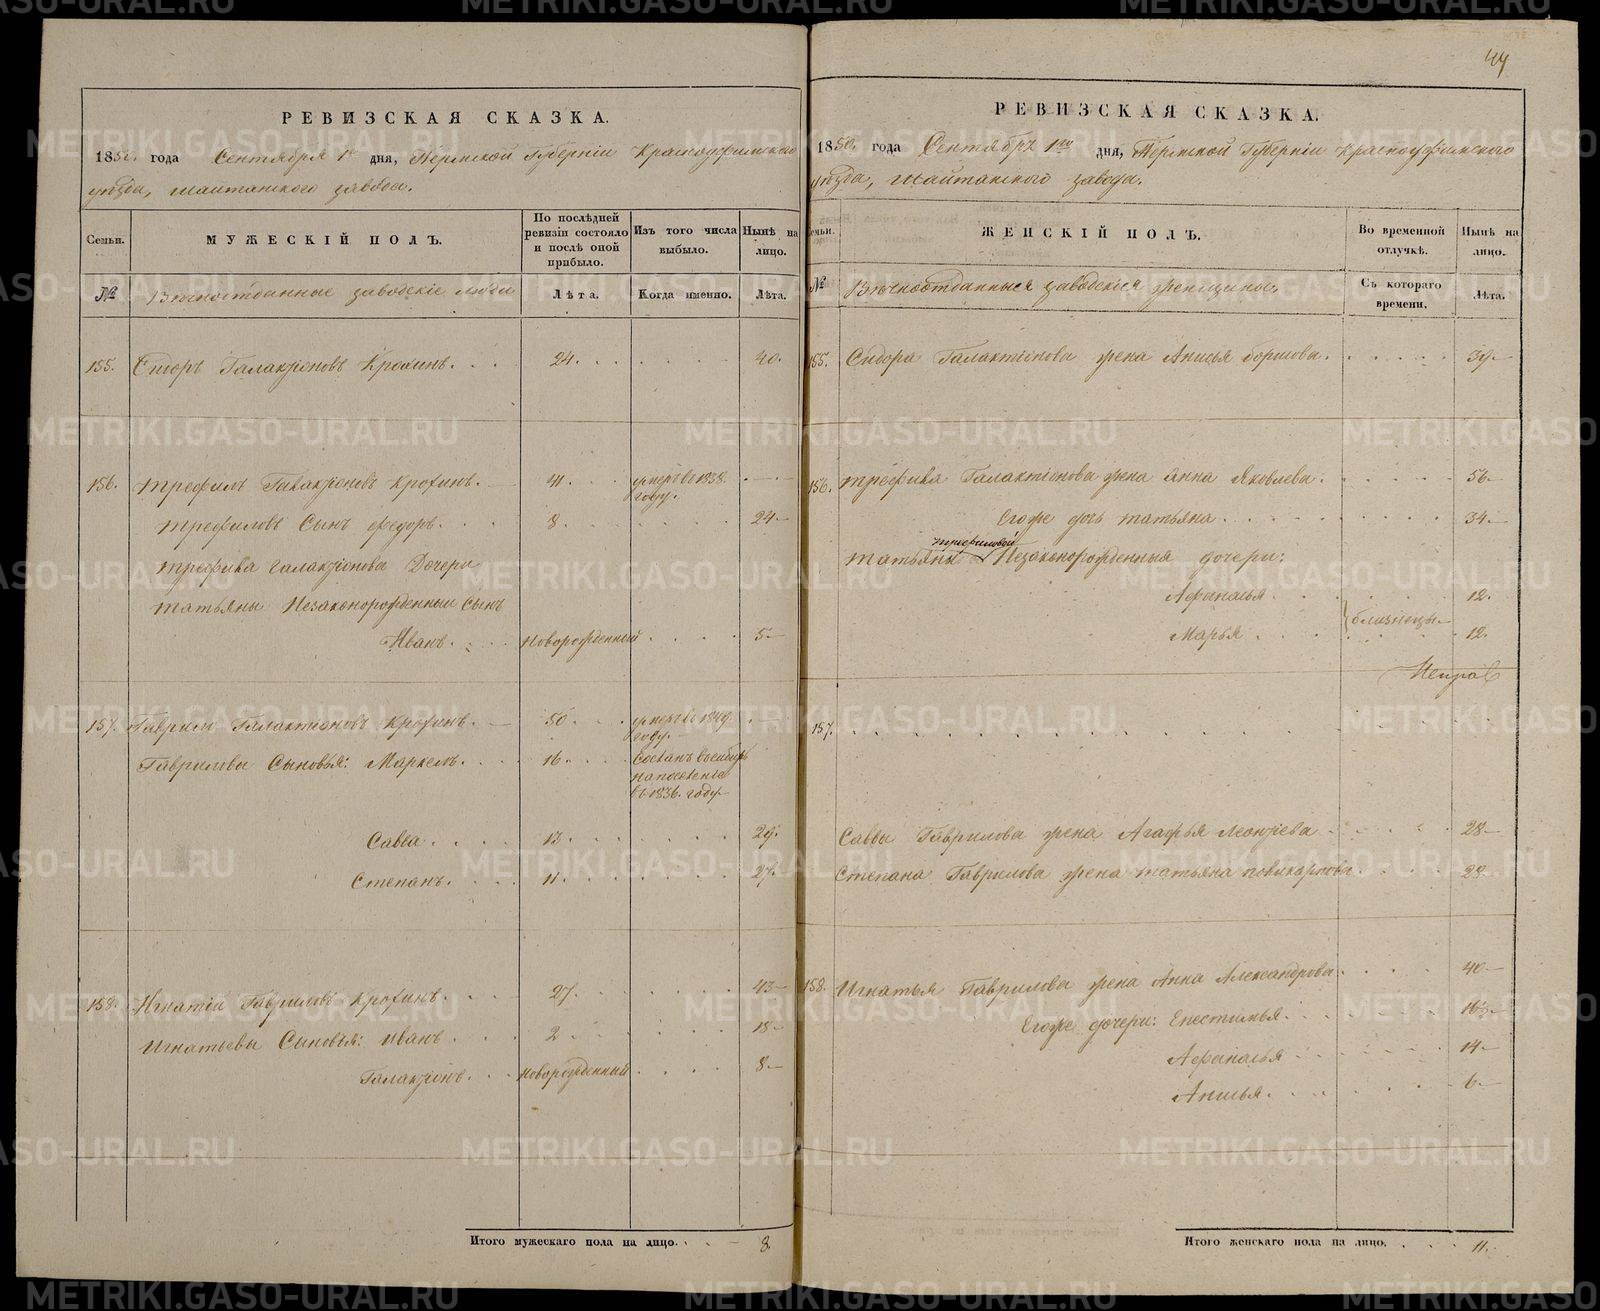 РЕВИЗСКАЯ СКАЗКА.
1850. года Сентября 1го дня, Пермской Губерніи Красноуфимского
уѣзда, Шайтанского завода.
Семьи. МУЖЕСКІЙ ПОЛЪ. По послѣдней ревизіи состояло и послѣ оной прибыло. Изъ того числа выбыло. Нынѣ на лицо.
№ Вѣчноотданные заводскіе люди Лѣта. Когда именно. Лѣта.
155. Сидоръ Галактіоновъ Крохинъ. 24. 40.
156. Трефилъ Галактіоновъ Крохинъ. 41. умеръ въ 1838. году.
Трефиловъ Сынъ Федоръ. 8. 24.
Трефила Галактіонова Дочери
Татьяны Незаконорожденный Сынъ
Иванъ. Новорожденный 5.
157. Гаврилъ Галактіоновъ Крохинъ. 50. умеръ въ 1849. году.
Гавриловы Сыновья: Маркелъ. 16. Сосланъ в Сибирь на поселеніе въ 1836. году
Савва. 13. 29.
Степанъ. 11. 27.
158. Игнатій Гавриловъ Крохинъ. 27. 43
Игнатьевы Сыновья: Иванъ. 2. 18
Галактіонъ. Новорожденный 8
Итого мужескаго пола на лицо. 8.
44
РЕВИЗСКАЯ СКАЗКА.
1850. года Сентября 1го дня, Пермской Губерніи Красноуфимского
уѣзда, Шайтанского завода.
Семьи. ЖЕНСКІЙ ПОЛЪ. Во временной отлучкѣ. Нынѣ на лицо.
№ Вѣчноотданныя заводскія женщины. Съ котораго времени. Лѣта.
155. Сидора Галактіонова жена Анисья 39
156. Трефила Галактіонова жена Анна Яковлева. 56
Егоже дочь Татьяна. 34
Трефиловой
Татьяны Незаконорожденныя дочери:
Афанасья 12.
близнецы
Марья 12.
157.
Саввы Гаврилова жена Агафья Леонтіева 28
Степана Гаврилова жена Татьяна Поликарпова
158. Игнатья Гаврилова жена Анна Александрова 40
Егоже дочери: Епестимья. 16½
Афанасья 14
Анисья. 6
Итого женскаго пола на лицо. 11.
METRIKI.GASO-URAL.RU